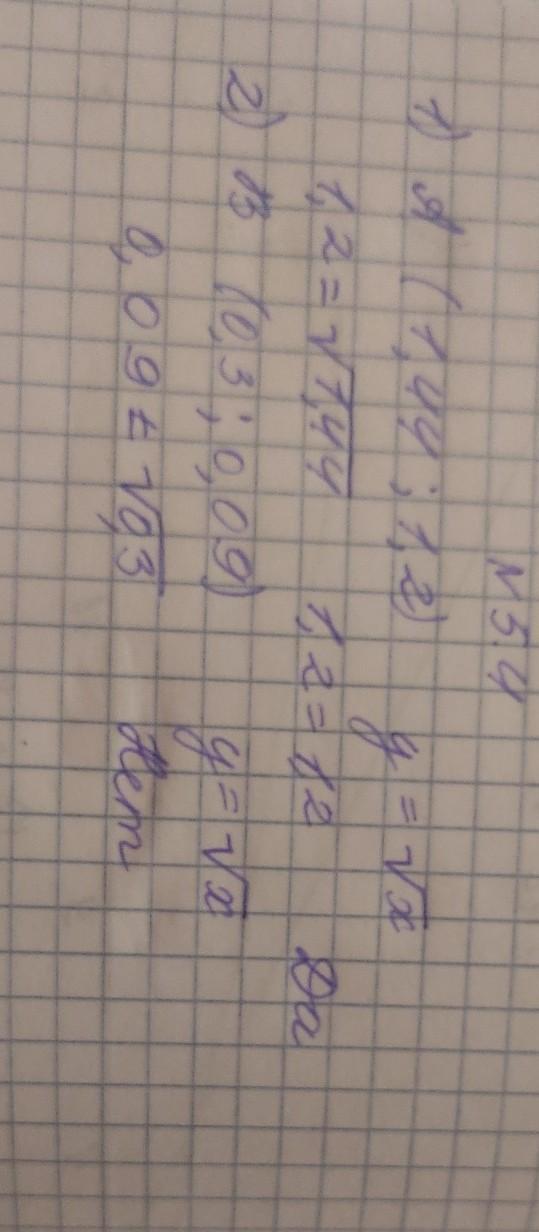 N 5.4
1) А (1,44 ; 1,2) y = √x
1,2 = √1,44 1,2 = 1,2 Да
2) В (0,3 ; 0,09) y = √x
0,09 ≠ √0,3 Нет